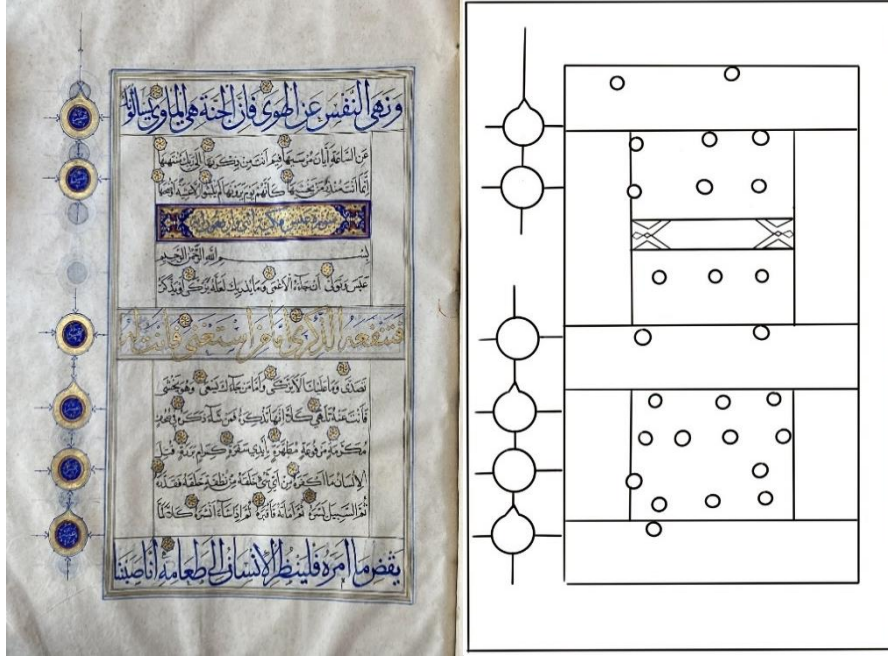 ونهى النفس عن الهوى فإن الجنة هي المأوى يسألونك
عن الساعة أيان مرسيها فيم أنت من ذكريها إلى ربك منتهيها
إنما أنت منذر من يخشيها كأنهم يوم يرونها لم يلبثوا إلا عشية أو ضحيها
سورة عبس مكية
بسم الله الرحمن الرحيم
عبس وتولى أن جاءه الأعمى وما يدريك لعله يزكى أو يذكر
فتنفعه الذكرى أما من استغنى فأنت له
تصدى وما عليك ألا يزكى وأما من جاءك يسعى وهو يخشى
فأنت عنه تلهى كلا إنها تذكرة فمن شاء ذكره في صحف
مكرمة مرفوعة مطهرة بأيدي سفرة كرام بررة قتل
الإنسان ما أكفره من أي شيء خلقه من نطفة خلقه فقدره
ثم السبيل يسره ثم أماته فأقبره ثم إذا شاء أنشره كلا لما
يقض ما أمره فلينظر الإنسان إلى طعامه أنا صببنا